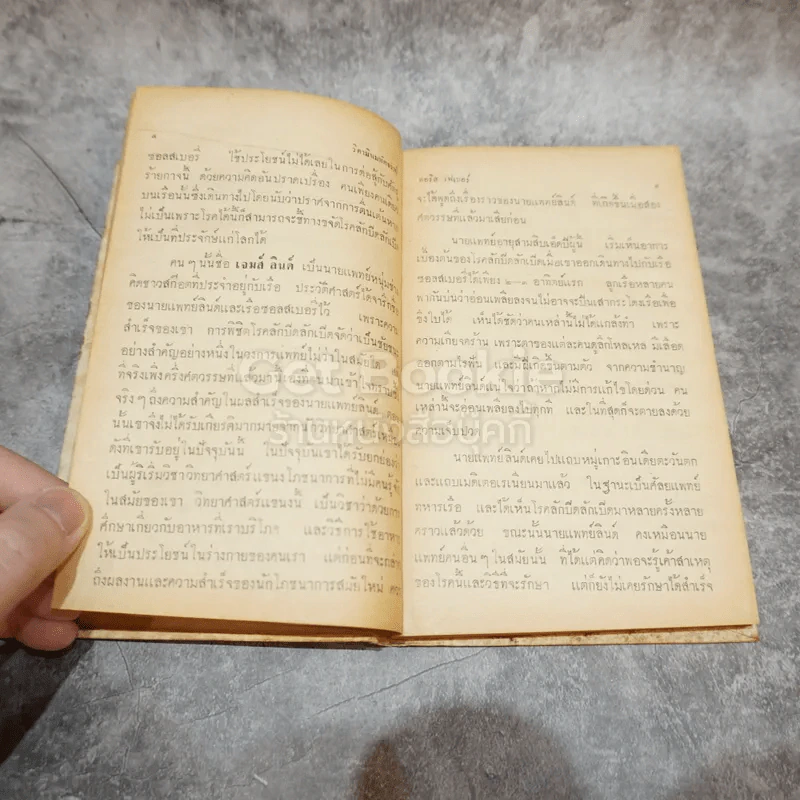 ๔
วิตามินมหัศจรรย์
ซอลสเบอรี่ ใช้ประโยชน์ไม่ได้เลยในการต่อสู้กับศัตรู
ร้ายกาจนี้ ด้วยความคิดอันปราดเปรื่อง คนเพียงคนเดียว
บนเรือนั้นซึ่งเดินทางไปโดยนับว่าปราศจากการตื่นเต้น
ไม่เป็นเพราะโรคได้นี้ก็สามารถจะชี้ทางขจัดโรคลักปิดลักเปิด
ให้เป็นที่ประจักษ์แก่โลกได้
คน ๆ นั้นชื่อ เจมส์ ลินด์ เป็นนายแพทย์หนุ่มช่าง
คิดชาวสก๊อตที่ประจำอยู่กับเรือ ประวัติศาสตร์ได้จารึกชื่อ
ของนายแพทย์ลินด์และเรือซอลสเบอรี่ไว้ เพราะความ
สำเร็จของเขา การพิชิตโรคลักปิดลักเปิดจัดว่าเป็นชัยชนะ
อย่างสำคัญอย่างหนึ่งในวงการแพทย์ไม่ว่าในสมัยใด
ที่จริงเพิ่งครึ่งศตวรรษที่แล้วมานี้เองที่คนเราเข้าใจ
จริง ๆ ถึงความสำคัญในผลสำเร็จของนายแพทย์ลินด์
นั้นเขาจึงไม่ได้รับเกียรติมากมายจากนักวิทยาศาสตร์
ดังที่เขารับอยู่ในปัจจุบันนี้ ในปัจจุบันเขาได้รับยกย่อง
เป็นผู้เริ่มวิชาวิทยาศาสตร์แขนงโภชนาการที่ไม่มีคนรู้จัก
ในสมัยของเขา วิทยาศาสตร์แขนงนี้ เป็นวิชาว่าด้วยการ
ศึกษาเกี่ยวกับอาหารที่เราบริโภค และวิธีการใช้อาหาร
ให้เป็นประโยชน์ในร่างกายของคนเรา แต่ก่อนที่จะกล่าว
ถึงผลงานและความสำเร็จของนักโภชนาการสมัยใหม่
ดอริส เฟเบอร์
๕
จะได้พูดถึงเรื่องราวของนายแพทย์ลินด์ ที่เกิดขึ้นเมื่อสอง
ศตวรรษที่แล้วมาเสียก่อน
นายแพทย์อายุสามสิบเอ็ดปีผู้นี้ เริ่มเห็นอาการ
เบื้องต้นของโรคลักปิดลักเปิดเมื่อเขาออกเดินทางไปกับเรือ
ซอลสเบอรี่ได้เพียง ๒-๓ อาทิตย์แรก ลูกเรือหลายคน
พากันบ่นว่าอ่อนเพลียลงจนไม่อาจจะปีนเสากระโดงเรือเพื่อ
ขึงใบได้ เห็นได้ชัดว่าคนเหล่านั้นไม่ได้แกล้งทำ เพราะ
ความเกียจคร้าน เพราะตาของแต่ละคนดูลึกโหลเหล มีเลือด
ออกตามไรฟัน และมีฝีเกิดขึ้นตามตัว จากความชำนาญ
นายแพทย์ลินด์แน่ใจว่าถ้าหากไม่มีการแก้ไขโดยด่วน คน
เหล่านั้นจะอ่อนเพลียลงไปทุกที และในที่สุดก็จะตายลงด้วย
ความเจ็บปวด
นายแพทย์ลินด์เคยไปแถบหมู่เกาะอินเดียตะวันตก
และแถบเมดิเตอเรเนียนมาแล้ว ในฐานะเป็นศัลยแพทย์
ทหารเรือ และได้เห็นโรคลักปิดลักเปิดมาหลายครั้งหลาย
คราวแล้วด้วย ขณะนั้นนายแพทย์ลินด์ คงเหมือนนาย
แพทย์คนอื่น ๆ ในสมัยนั้น ที่ได้แต่คิดว่าพอจะรู้เค้าสาเหตุ
ของโรคนี้และวิธีที่จะรักษา แต่ก็ยังไม่เคยรักษาได้สำเร็จ
Get Bookie
ร้านหนังสือบุ๊คกี้